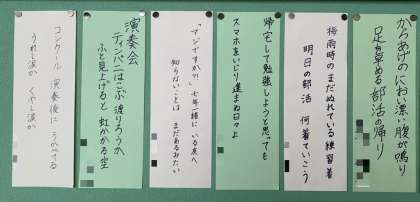 からあげのにおい漂い腹が鳴り
足を早める部活の帰り
梅雨時のまだぬれている練習着
明日の部活 何着ていこう
帰宅して勉強しようと思っても
スマホをいじり進まぬ日々よ
「マジですか?!」七年一緒にいる友へ
知らないことは まだあるみたい
演奏会
ティンパニはこぶ渡りろうか
ふと見上げると 虹かかる空
コンクール 演奏後に うかべる
うれし涙か くやし涙か